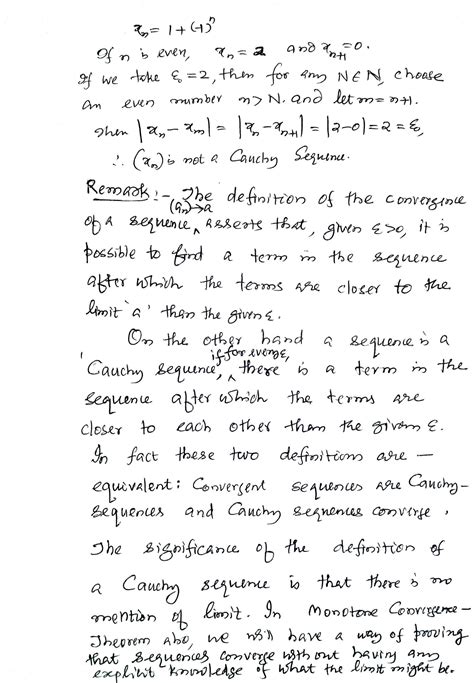 xₙ = 1 + (-1)ⁿ
If n is even, xₙ = 2 and xₙ₊₁ = 0.
If we take ε₀ = 2, then for any N∈ℕ, choose
an even number n > N. and let m = n+1.
Then |xₙ - xₘ| = |xₙ - xₙ₊₁| = |2-0| = 2 = ε₀
∴ (xₙ) is not a Cauchy Sequence.
Remark :- The definition of the convergence
of a sequence (aₙ)→a asserts that, given ε>0, it is
possible to find a term in the sequence
after which the terms are closer to the
limit 'a' than the given ε.
On the other hand a sequence is a
'Cauchy sequence, if, for every ε, there is a term in the
sequence after which the terms are
closer to each other than the given ε.
In fact these two definitions are —
equivalent : Convergent sequences are Cauchy-
sequences and Cauchy sequences converge.
The significance of the definition of
a Cauchy sequence is that there is no
mention of limit. In Monotone Convergence-
Theorem also, we will have a way of proving
that sequences converge without having any
explicit knowledge of what the limit might be.